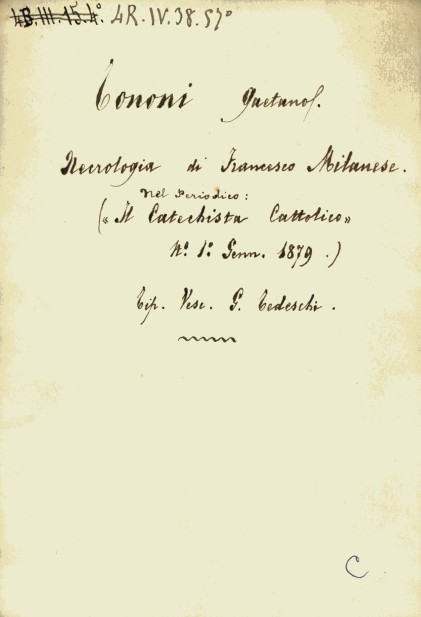 4B.III.15.4° 4R.IV.38.57°
Tononi Gaetano.
Necrologia di Francesco Milanese.
Nel Periodico:
(« Il Catechista Cattolico»
N.° 1.° Genn. 1879.)
Tip. Vesc. G. Tedeschi.
C